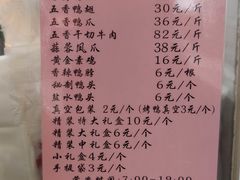 五香鸭翅 30元/斤
五香鸭爪 36元/斤
五香干切牛肉 82元/斤
蒜蓉凤爪 38元/斤
黄金素鸡 16元/斤
香辣鸭脖 6元/根
秘制鸭头 6元/个
盐水鸭头 6元/个
真空包装 2元/个(烤鸭真空3元/个)
精装特大礼盒10元/个
精装大礼盒6元/个
精装中礼盒6元/个
小礼盒4元/个
手提袋3元/个
营业时间:7:00-19:00